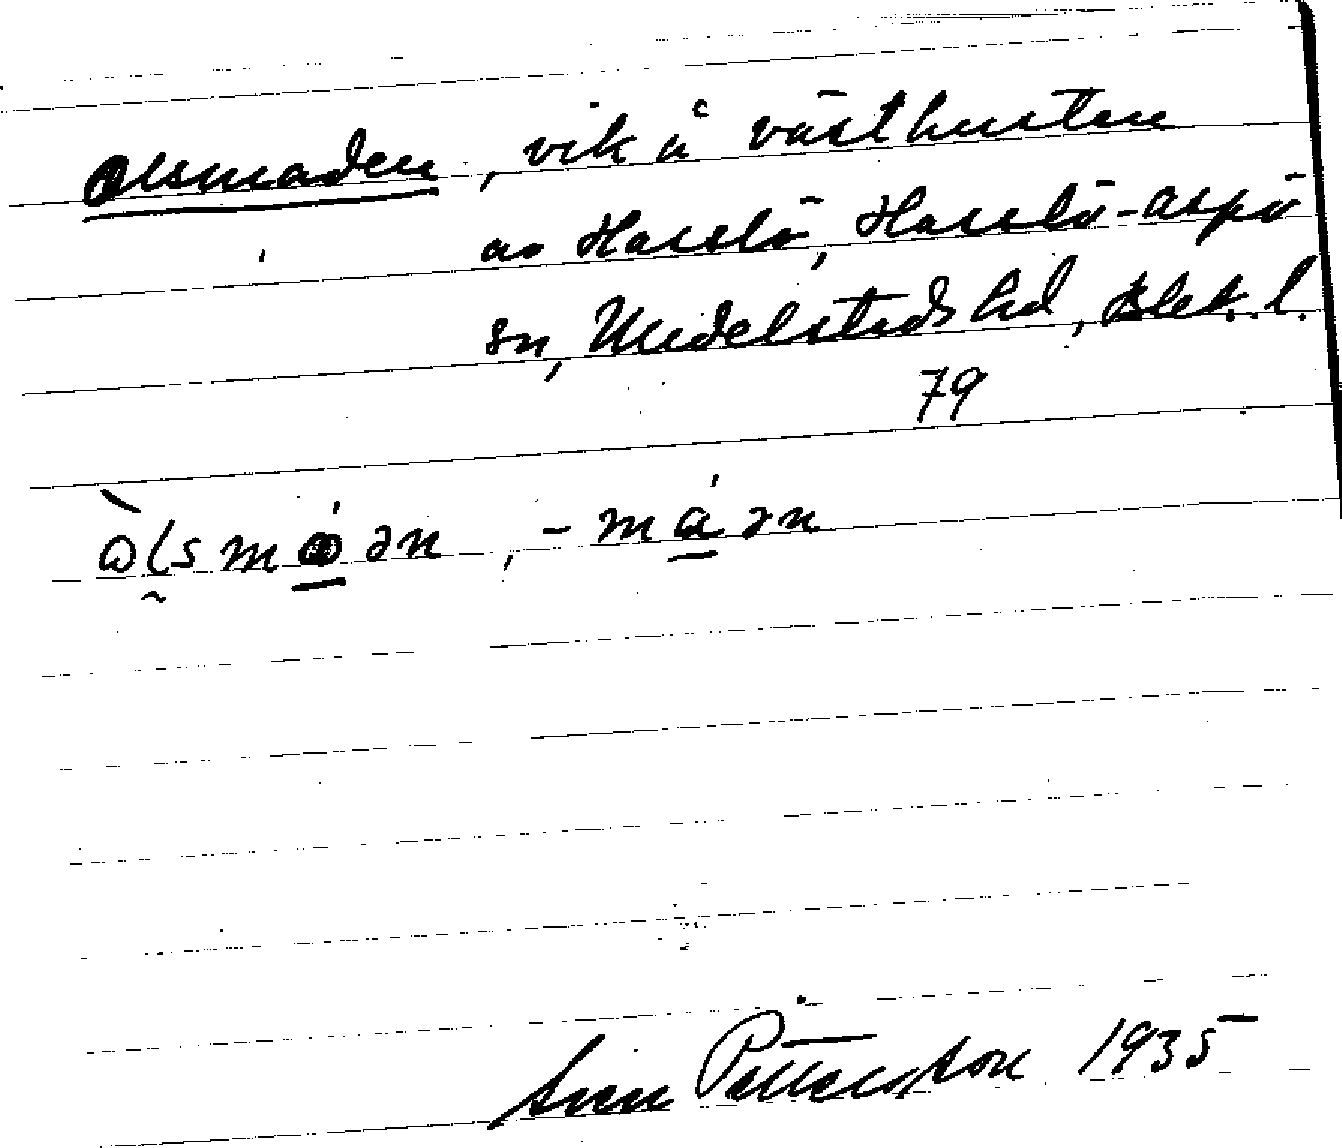 Olsmaden, vik å västkusten
av Hasslö, Hasslö-Aspö
sn, Medelsteds hd, Blek. l.
79
ɷ̀lsmáən, -máən
Sven Pettersson 1935